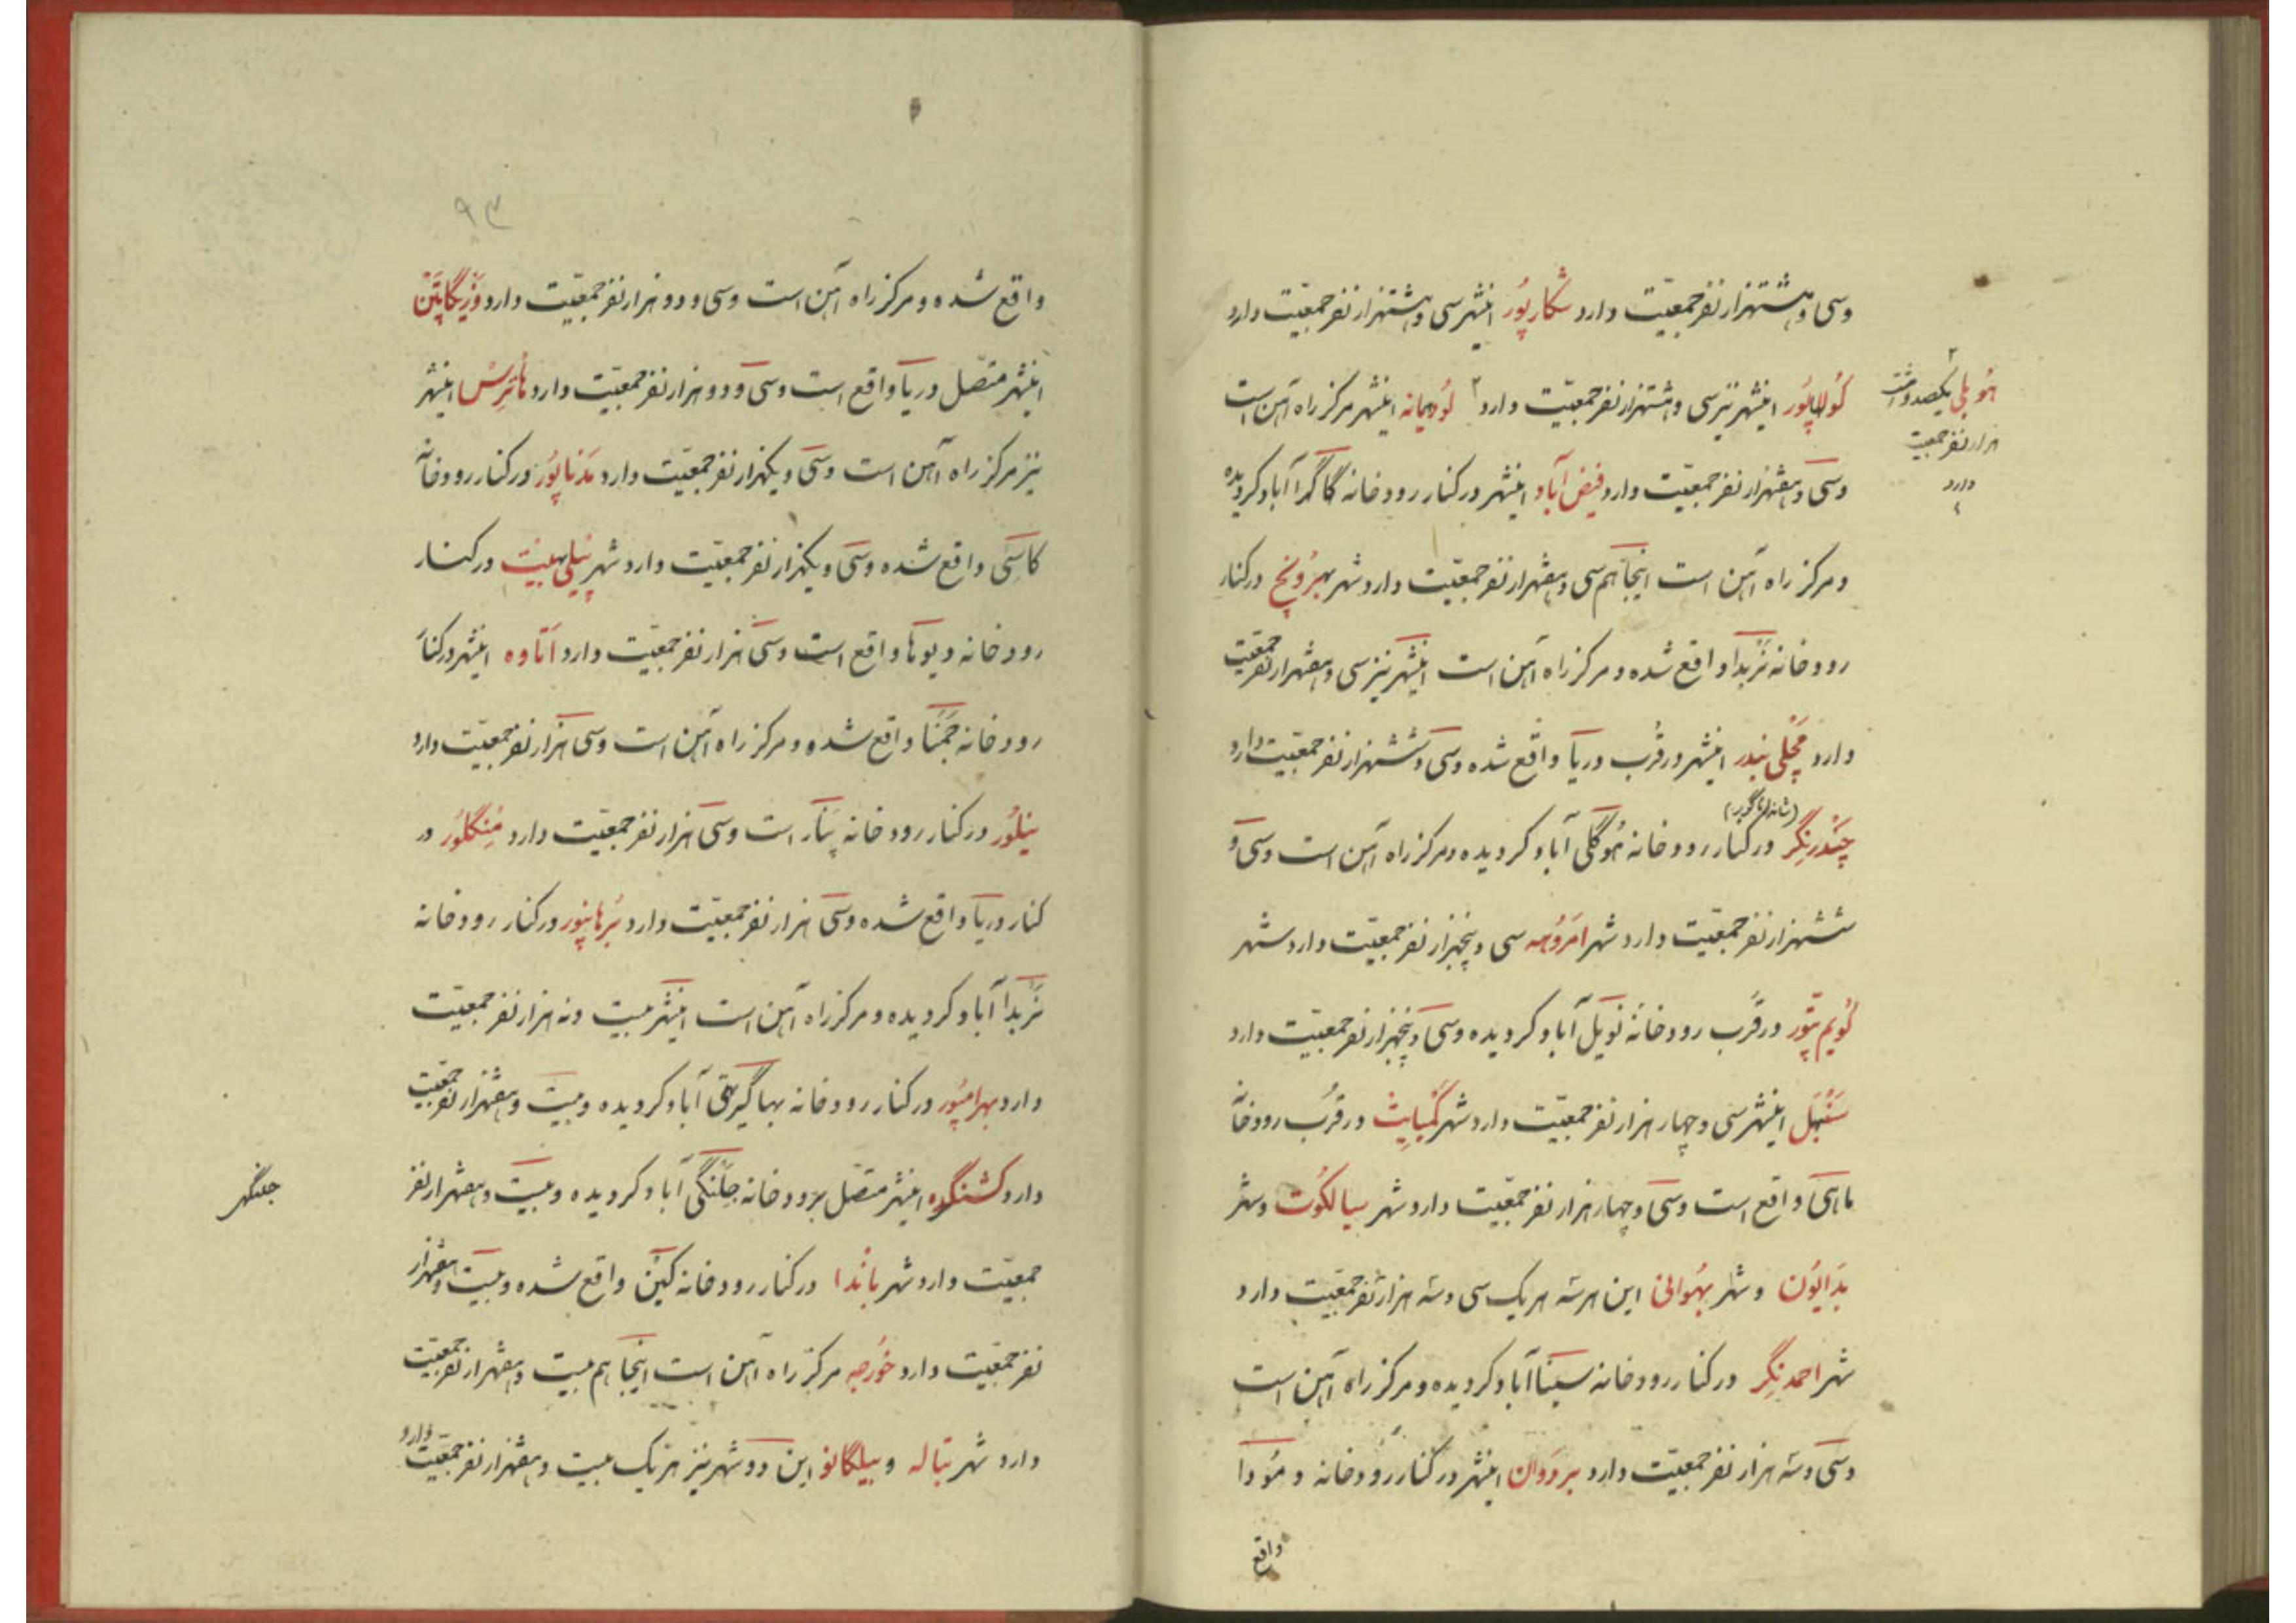 وسی و هشتهزار نفر جمعیّت دارد شکارپُور اینشهر سی و هشتهزار نفر جمعیّت دارد
کُولاپُور اینشهر نیز سی و هشتهزار نفر جمعیّت دارد ۲ لُودیانه اینشهر مرکز راه آهن است
هُوبلی یکصد و هشت
هزار نفر جمعیت
دارد
وسی و هفتهزار نفر جمعیّت دارد فیض آباد اینشهر در کنار رودخانه گاگرا آباد کردیده
و مرکز راه آهن است اینجا هم سی و هفتهزار نفر جمعیّت دارد شهر بهرُونچ در کنار
رودخانه نربدا واقع شده و مرکز راه آهن است اینشهر نیز سی و هفتهزار نفر جمعیّت
دارد مچلی بندر اینشهر در قُرب دریا واقع شده وسی و ششهزار نفر جمعیّت دارد
چندرنگر در کنار رودخانه هُوگلی آباد کردیده و مرکز راه آهن است وسی و
ششهزار نفر جمعیّت دارد شهر امرُوهه سی و پنجهزار نفر جمعیّت دارد شهر
کُویم تپُور در قُرب رودخانهٔ نویل آباد کردیده وسی و پنجهزار نفر جمعیّت دارد
سَنبهَل اینشهر سی و چهار هزار نفر جمعیّت دارد شهر کمبایِت در قُرب رودخانهٔ
ماهی واقع است وسی و چهار هزار نفر جمعیّت دارد شهر سیالکُوت و شهر
بدایُون و شهر بهُوانی این هر سه هر یک سی و سه هزار نفر جمعیّت دارد
شهر احمدنگِر در کنار رودخانه سینا آباد کردیده و مرکز راه آهن است
وسی و سه هزار نفر جمعیّت دارد بردوان اینشهر در کنار رودخانه دمُودا
واقع
۹۳
واقع شده و مرکز راه آهن است وسی و دو هزار نفر جمعیّت دارد وزیگاپتن
اینشهر متّصل دریا واقع است وسی و دو هزار نفر جمعیّت دارد هاتِرِس اینشهر
نیز مرکز راه آهن است وسی و یکهزار نفر جمعیّت دارد مَدناپُور در کنار رودخانهٔ
کاسی واقع شده وسی و یکهزار نفر جمعیّت دارد شهر پیلی بهیت در کنار
رودخانه دیوها واقع است وسی هزار نفر جمعیّت دارد اتاوه اینشهر در کنار
رودخانه جمنا واقع شده و مرکز راه آهن است وسی هزار نفر جمعیّت دارد
نیلُور در کنار رودخانه پنار است وسی هزار نفر جمعیّت دارد مُنگلُور در
کنار دریا واقع شده وسی هزار نفر جمعیّت دارد بُرهانپور در کنار رودخانه
نربدا آباد کردیده و مرکز راه آهن است اینشهر بیست و نه هزار نفر جمعیّت
دارد بهرامپُور در کنار رودخانه بهاگیرتی آباد کردیده و بیست و هفتهزار نفر جمعیّت
دارد کشنگره اینشهر متصّل برودخانه جلنگی آباد کردیده و بیست و هفتهزار نفر
جمعیّت دارد شهر باندا در کنار رودخانه کین واقع شده و بیست و هفتهزار
نفر جمعیّت دارد خُورجه مرکز راه آهن است اینجا هم بیست و هفتهزار نفر جمعیّت
دارد شهر بتاله و بیلگانو این دو شهر نیز هر یک بیست و هفتهزار نفر جمعیّت دارد